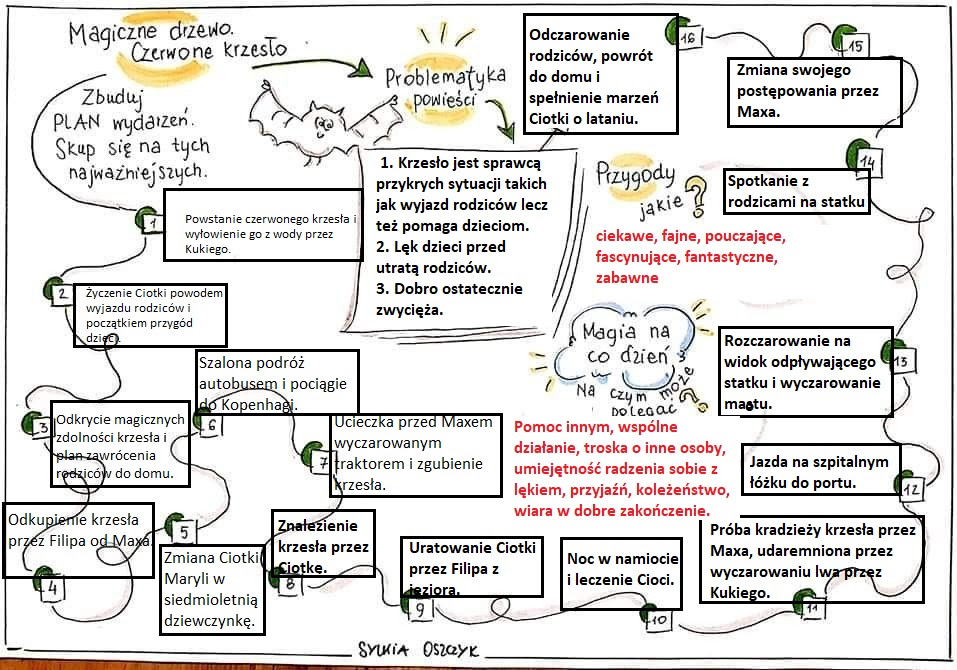 Magiczne drzewo.
Czerwone krzesło
Zbuduj
PLAN wydarzeń.
Skup się na tych
najważniejszych.
Problematyka
powieści
1. Krzesło jest sprawcą
przykrych sytuacji takich
jak wyjazd rodziców lecz
też pomaga dzieciom.
2. Lęk dzieci przed
utratą rodziców.
3. Dobro ostatecznie
zwycięża.
Przygody
jakie?
ciekawe, fajne, pouczające,
fascynujące, fantastyczne,
zabawne
Magia na
co dzień
Na czym może
polegać?
Pomoc innym, wspólne
działanie, troska o inne osoby,
umiejętność radzenia sobie z
lękiem, przyjaźń, koleżeństwo,
wiara w dobre zakończenie.
1
Powstanie czerwonego krzesła i
wyłowienie go z wody przez
Kukiego.
2
Życzenie Ciotki powodem
wyjazdu rodziców i
początkiem przygód
dzieci.
3
Odkrycie magicznych
zdolności krzesła i
plan zawrócenia
rodziców do domu.
4
Odkupienie krzesła
przez Filipa od Maxa.
5
Zmiana Ciotki
Maryli w
siedmioletnią
dziewczynkę.
6
Szalona podróż
autobusem i pociągie
do Kopenhagi.
7
Ucieczka przed Maxem
wyczarowanym
traktorem i zgubienie
krzesła.
8
Znalezienie
krzesła przez
Ciotkę.
9
Uratowanie Ciotki
przez Filipa z
jeziora.
10
Noc w namiocie
i leczenie Cioci.
11
Próba kradzieży krzesła przez
Maxa, udaremniona przez
wyczarowaniu lwa przez
Kukiego.
12
Jazda na szpitalnym
łóżku do portu.
13
Rozczarowanie na
widok odpływającego
statku i wyczarowanie
mostu.
14
Spotkanie z
rodzicami na statku
15
Zmiana swojego
postępowania przez
Maxa.
16
Odczarowanie
rodziców, powrót
do domu i
spełnienie marzeń
Ciotki o lataniu.
SYLWIA OSZCZYK